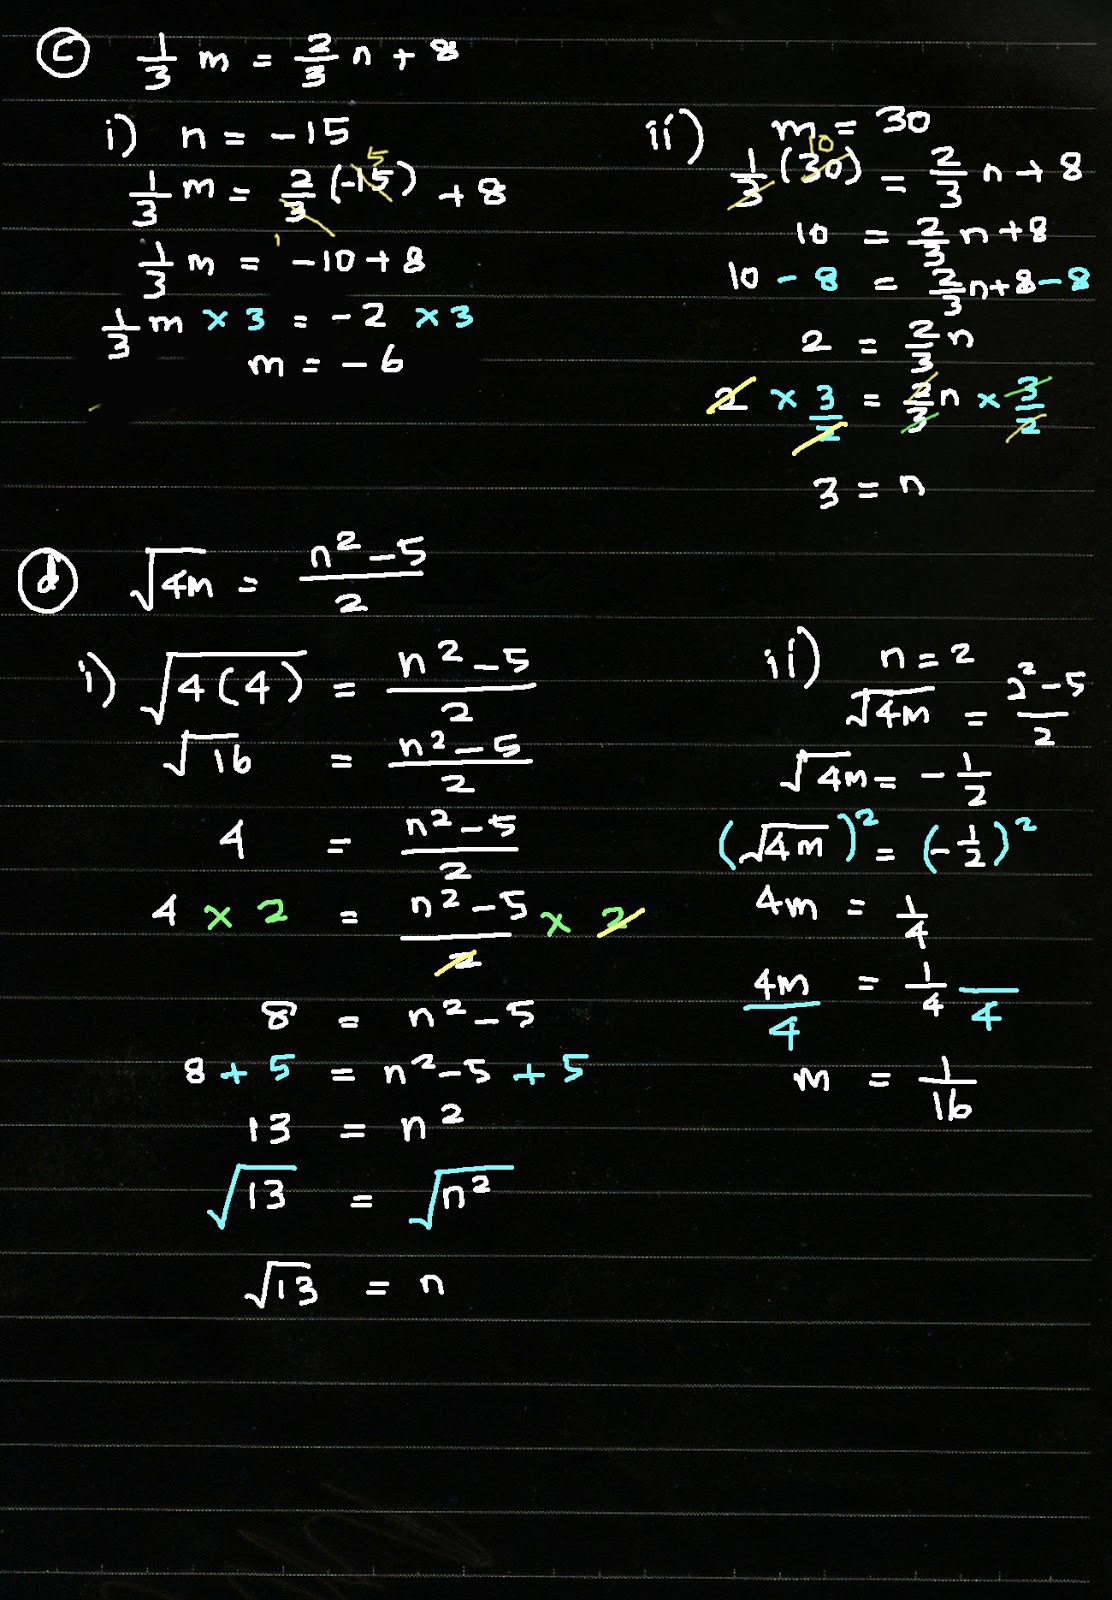 c 1/3 m = 2/3 n + 8
i) n = -15
1/3 m = 2/3 (-15) + 8
5
1
1/3 m = -10 + 8
1/3 m × 3 = -2 × 3
m = -6
ii) m = 30
10
1/3 (30) = 2/3 n + 8
10 = 2/3 n + 8
10 - 8 = 2/3 n + 8 - 8
2 = 2/3 n
2 × 3/2 = 2/3 n × 3/2
3 = n
d √4m = n² - 5 / 2
i) √4(4) = n² - 5 / 2
√16 = n² - 5 / 2
4 = n² - 5 / 2
4 × 2 = n² - 5 / 2 × 2
8 = n² - 5
8 + 5 = n² - 5 + 5
13 = n²
√13 = √n²
√13 = n
ii) n = 2
√4m = 2² - 5 / 2
√4m = - 1/2
(√4m)² = (- 1/2)²
4m = 1/4
4m/4 = 1/4 /4
m = 1/16